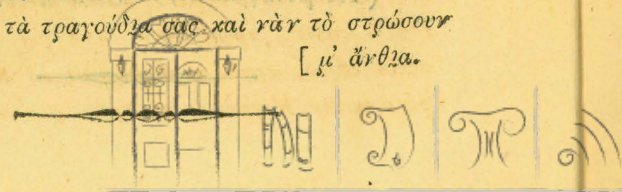 τὰ τραγούδια σας καὶ νὰν τὸ στρώσουν
[ μ' ἄνθια.